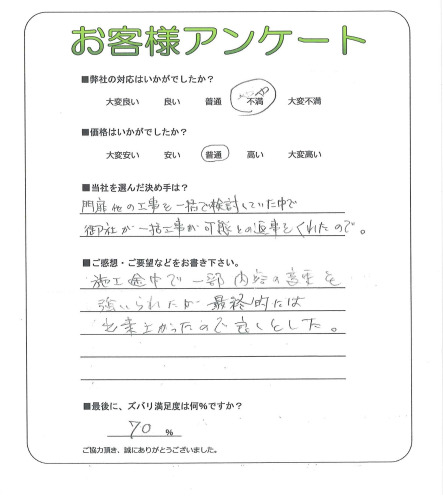 お客様アンケート
■弊社の対応はいかがでしたか？
大変良い 良い 普通 不満 大変不満
■価格はいかがでしたか？
大変安い 安い 普通 高い 大変高い
■当社を選んだ決め手は？
門扉他の工事を一括で検討していた中で
御社が一括工事が可能との返事をくれたので。
■ご感想・ご要望などをお書き下さい。
施工途中で一部内容の変更を
強いられたが最終的には
出来上がったので良しとした。
■最後に、ズバリ満足度は何％ですか？
70 ％
ご協力頂き、誠にありがとうございました。